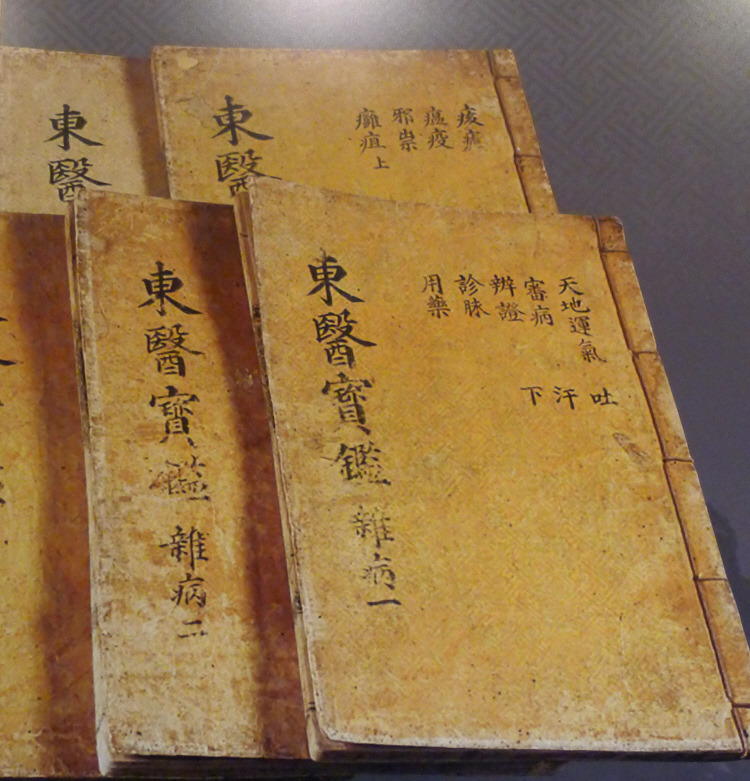 東醫寶鑑 雜病一
天地運氣
審病
辨證
診脉
用藥
吐
汗
下
東醫寶鑑 雜病二
東醫
邪祟
癰疽上
瘟疫
東醫